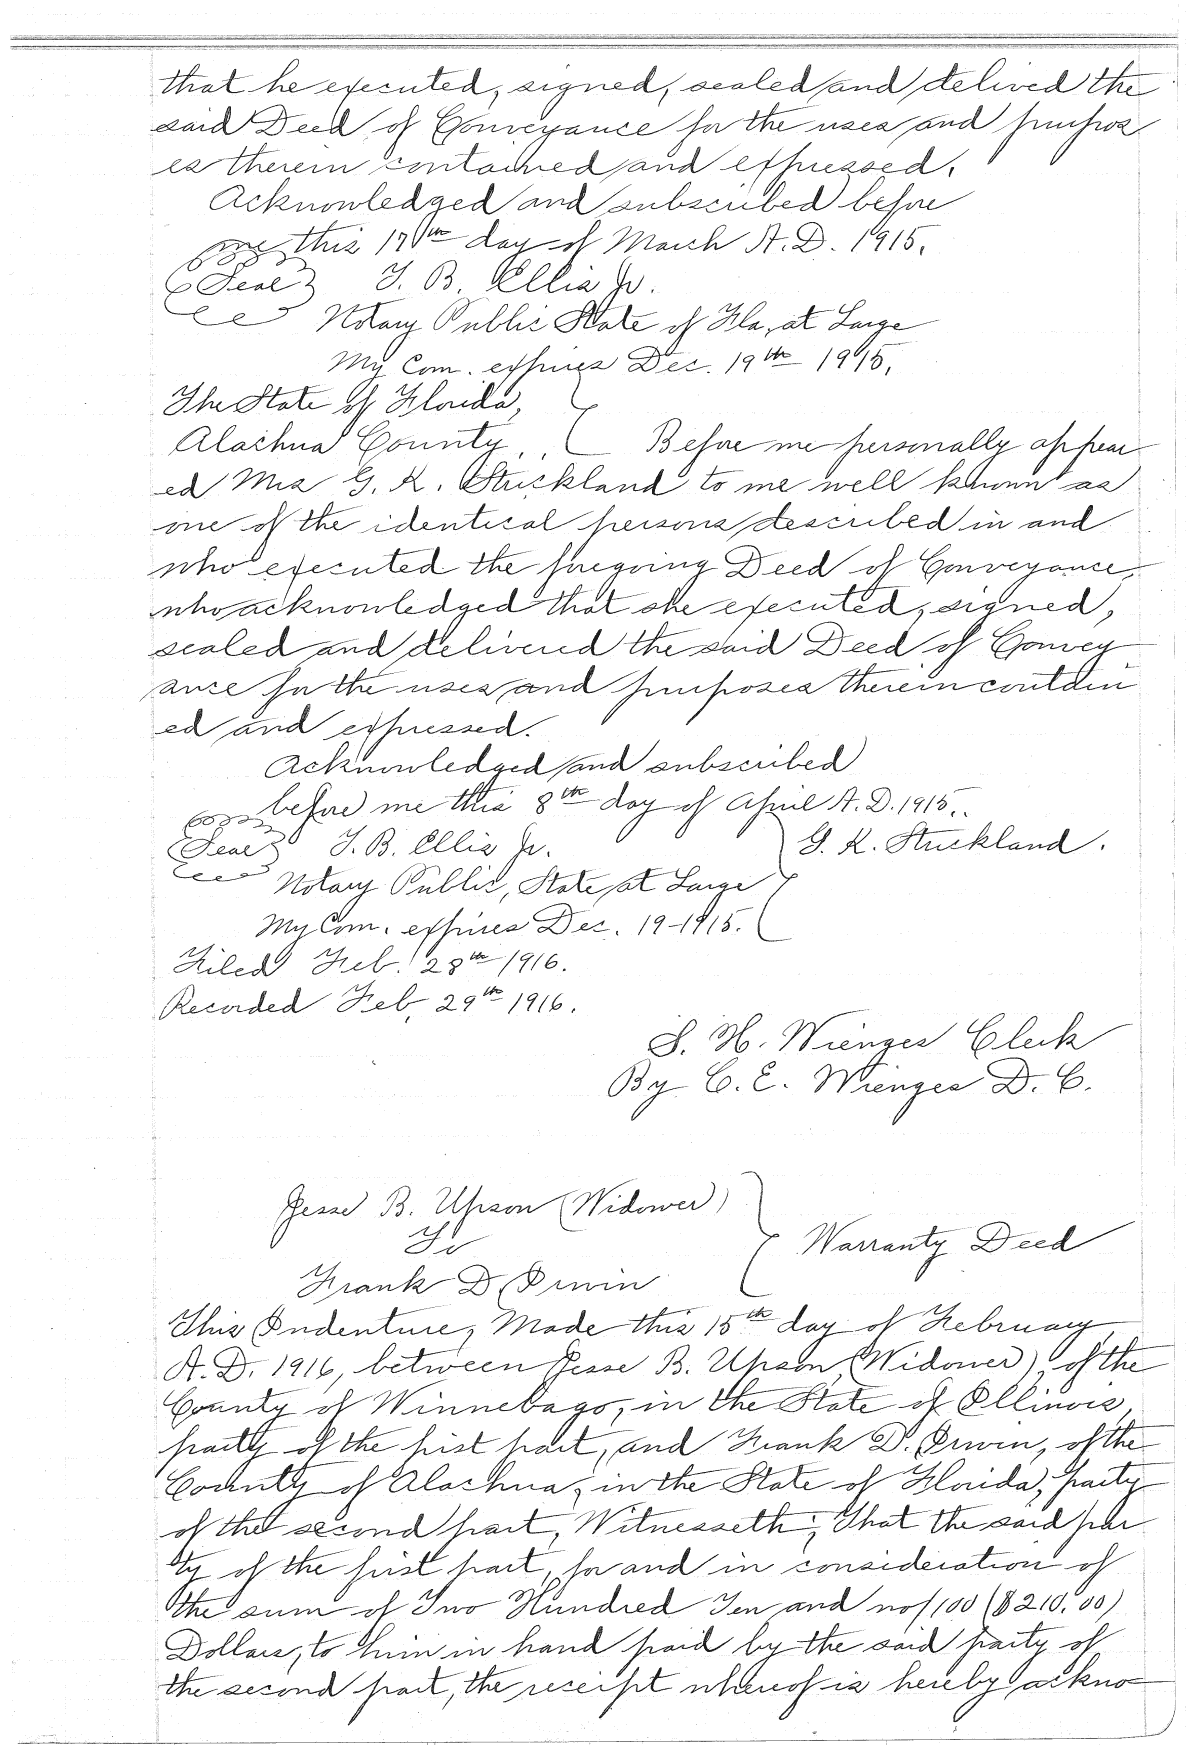 that he executed, signed, sealed and delived the
said Deed of Conveyance for the uses and purpos
es therein contained and expressed.
Acknowledged and subscribed before
me this 17th day of March A.D. 1915.
Seal T. B. Ellis Jr.
Notary Public State of Fla, at Large
My Com. expires Dec. 19th 1915,
The State of Florida,
Alachua County, Before me personally appear
ed Mrs G. K. Strickland to me well known as
one of the identical persons described in and
who executed the foregoing Deed of Conveyance,
who acknowledged that she executed, signed,
sealed and delivered the said Deed of Convey
ance for the uses and purposes therein contain
ed and expressed.
Acknowledged and subscribed
before me this 8th day of April A.D. 1915.
Seal T. B. Ellis Jr. G. K. Strickland.
Notary Public, State at Large
My Com. expires Dec. 19-1915.
Filed Feb. 28th 1916.
Recorded Feb. 29th 1916.
S. H. Wienges Clerk
By C. E. Wienges D. C.
Jesse B. Upson (Widower)
To Warranty Deed
Frank D. Irwin
This Indenture, Made this 15th day of February,
A.D. 1916, between Jesse B. Upson, (Widower), of the
County of Winnebago, in the State of Illinois,
party of the first part, and Frank D. Irwin, of the
County of Alachua, in the State of Florida, party
of the second part, Witnesseth; That the said par
ty of the first part, for and in consideration of
the sum of Two Hundred Ten and no/100 ($210.00)
Dollars, to him in hand paid by the said party of
the second part, the receipt whereof is hereby ackno